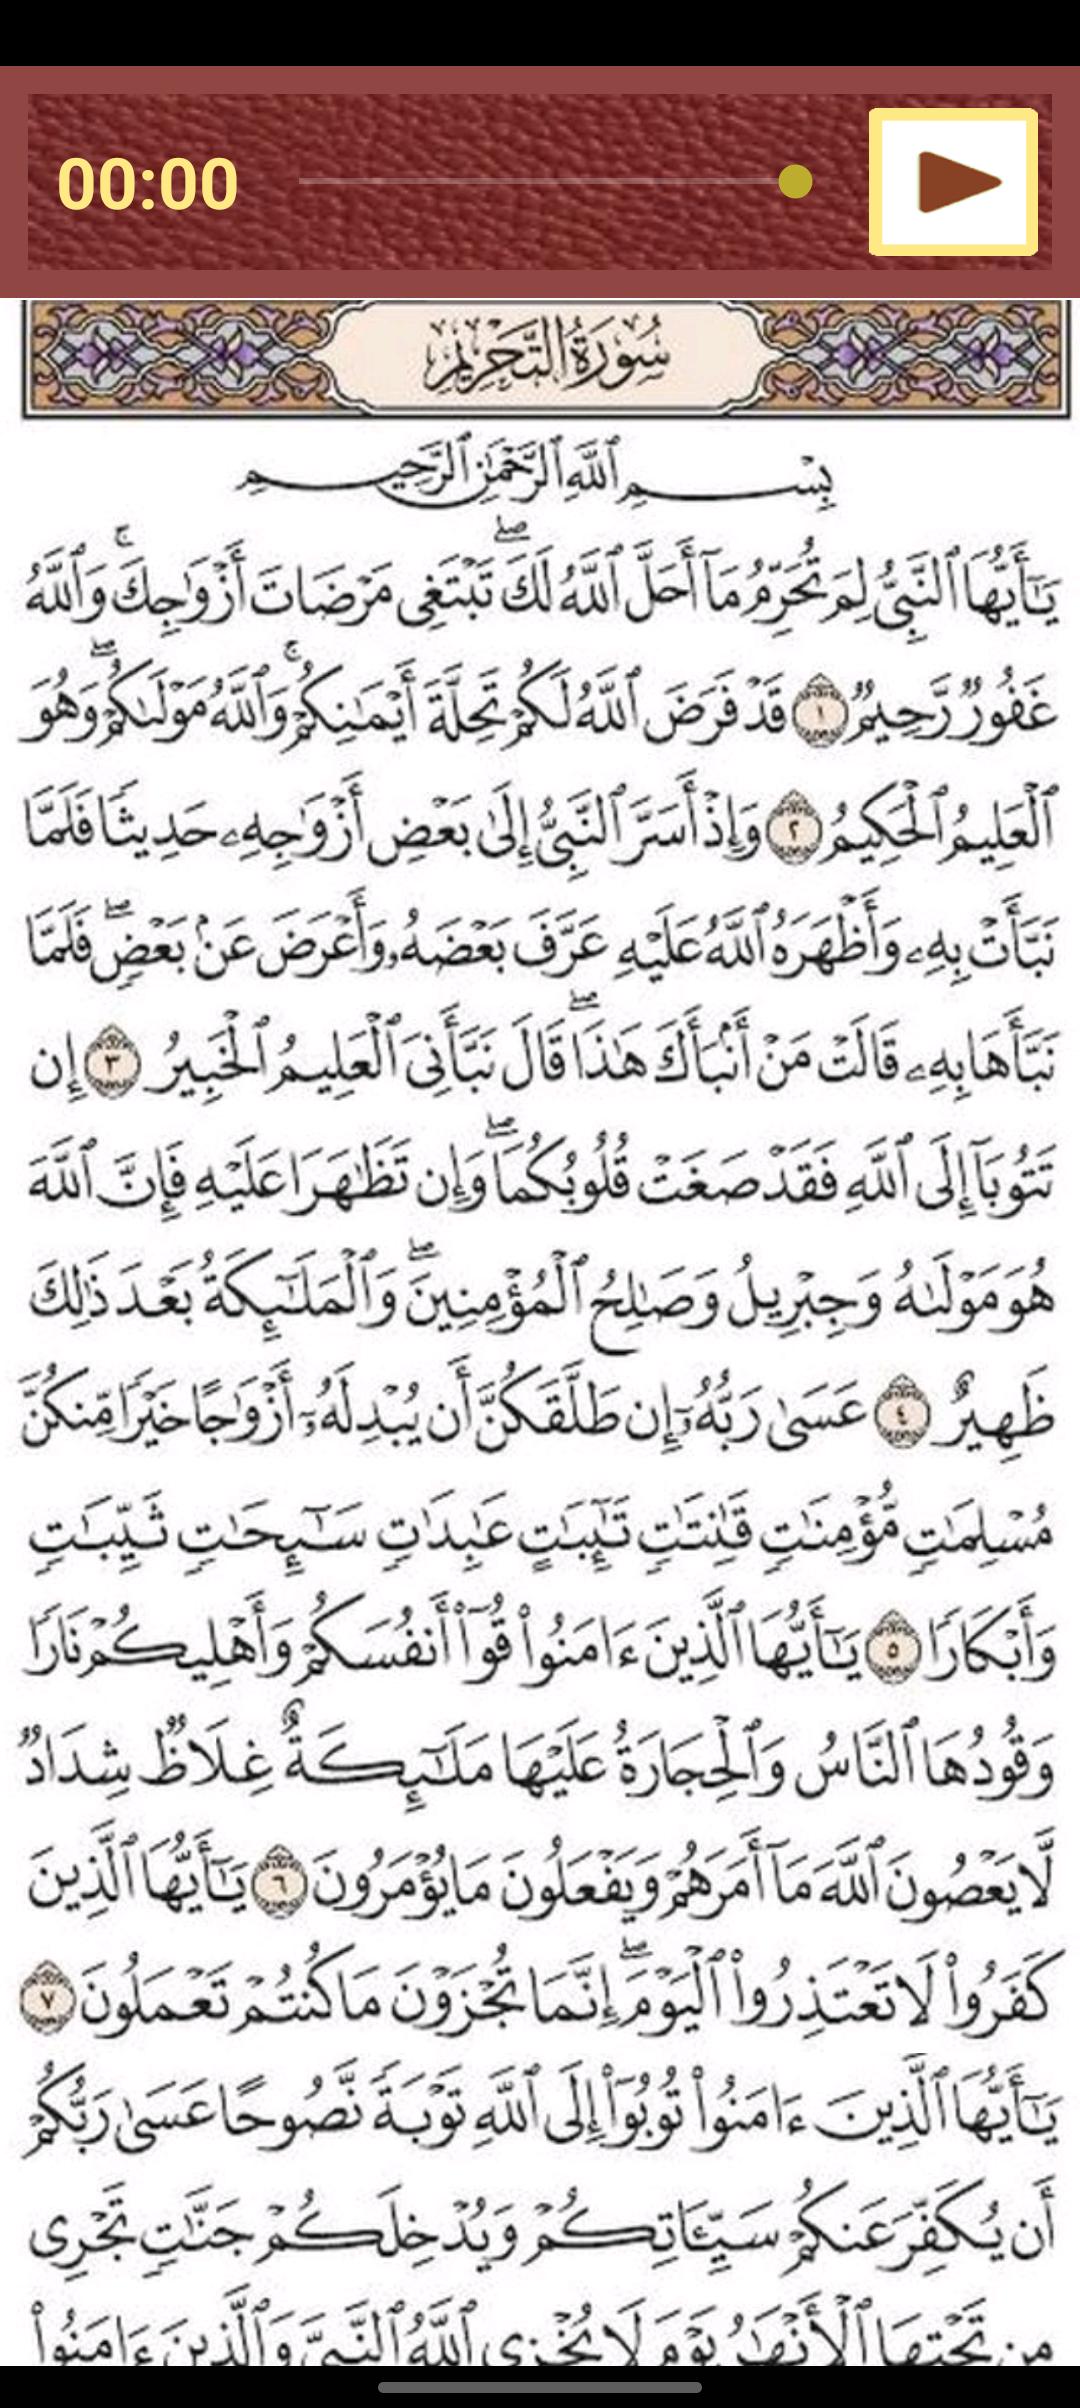 00:00
سُورَةُ التَّحْرِيمِ
بِسْمِ ٱللَّهِ ٱلرَّحْمَٰنِ ٱلرَّحِيمِ
يَٰٓأَيُّهَا ٱلنَّبِىُّ لِمَ تُحَرِّمُ مَآ أَحَلَّ ٱللَّهُ لَكَ ۖ تَبْتَغِى مَرْضَاتَ أَزْوَٰجِكَ ۚ وَٱللَّهُ
غَفُورٌ رَّحِيمٌ ١ قَدْ فَرَضَ ٱللَّهُ لَكُمْ تَحِلَّةَ أَيْمَٰنِكُمْ ۚ وَٱللَّهُ مَوْلَىٰكُمْ ۖ وَهُوَ
ٱلْعَلِيمُ ٱلْحَكِيمُ ٢ وَإِذْ أَسَرَّ ٱلنَّبِىُّ إِلَىٰ بَعْضِ أَزْوَٰجِهِۦ حَدِيثًا فَلَمَّا
نَبَّأَتْ بِهِۦ وَأَظْهَرَهُ ٱللَّهُ عَلَيْهِ عَرَّفَ بَعْضَهُۥ وَأَعْرَضَ عَنۢ بَعْضٍ ۖ فَلَمَّا
نَبَّأَهَا بِهِۦ قَالَتْ مَنْ أَنۢبَأَكَ هَٰذَا ۖ قَالَ نَبَّأَنِىَ ٱلْعَلِيمُ ٱلْخَبِيرُ ٣ إِن
تَتُوبَآ إِلَى ٱللَّهِ فَقَدْ صَغَتْ قُلُوبُكُمَا ۖ وَإِن تَظَٰهَرَا عَلَيْهِ فَإِنَّ ٱللَّهَ
هُوَ مَوْلَىٰهُ وَجِبْرِيلُ وَصَٰلِحُ ٱلْمُؤْمِنِينَ ۖ وَٱلْمَلَٰٓئِكَةُ بَعْدَ ذَٰلِكَ
ظَهِيرٌ ٤ عَسَىٰ رَبُّهُۥٓ إِن طَلَّقَكُنَّ أَن يُبْدِلَهُۥٓ أَزْوَٰجًا خَيْرًا مِّنكُنَّ
مُسْلِمَٰتٍ مُّؤْمِنَٰتٍ قَٰنِتَٰتٍ تَٰٓئِبَٰتٍ عَٰبِدَٰتٍ سَٰٓئِحَٰتٍ ثَيِّبَٰتٍ
وَأَبْكَارًا ٥ يَٰٓأَيُّهَا ٱلَّذِينَ ءَامَنُوا۟ قُوٓا۟ أَنفُسَكُمْ وَأَهْلِيكُمْ نَارًا
وَقُودُهَا ٱلنَّاسُ وَٱلْحِجَارَةُ عَلَيْهَا مَلَٰٓئِكَةٌ غِلَاظٌ شِدَادٌ
لَّا يَعْصُونَ ٱللَّهَ مَآ أَمَرَهُمْ وَيَفْعَلُونَ مَا يُؤْمَرُونَ ٦ يَٰٓأَيُّهَا ٱلَّذِينَ
كَفَرُوا۟ لَا تَعْتَذِرُوا۟ ٱلْيَوْمَ ۖ إِنَّمَا تُجْزَوْنَ مَا كُنتُمْ تَعْمَلُونَ ٧
يَٰٓأَيُّهَا ٱلَّذِينَ ءَامَنُوا۟ تُوبُوٓا۟ إِلَى ٱللَّهِ تَوْبَةً نَّصُوحًا عَسَىٰ رَبُّكُمْ
أَن يُكَفِّرَ عَنكُمْ سَيِّـَٔاتِكُمْ وَيُدْخِلَكُمْ جَنَّٰتٍ تَجْرِى
مِن تَحْتِهَا ٱلْأَنْهَٰرُ يَوْمَ لَا يُخْزِى ٱللَّهُ ٱلنَّبِىَّ وَٱلَّذِينَ ءَامَنُوا۟